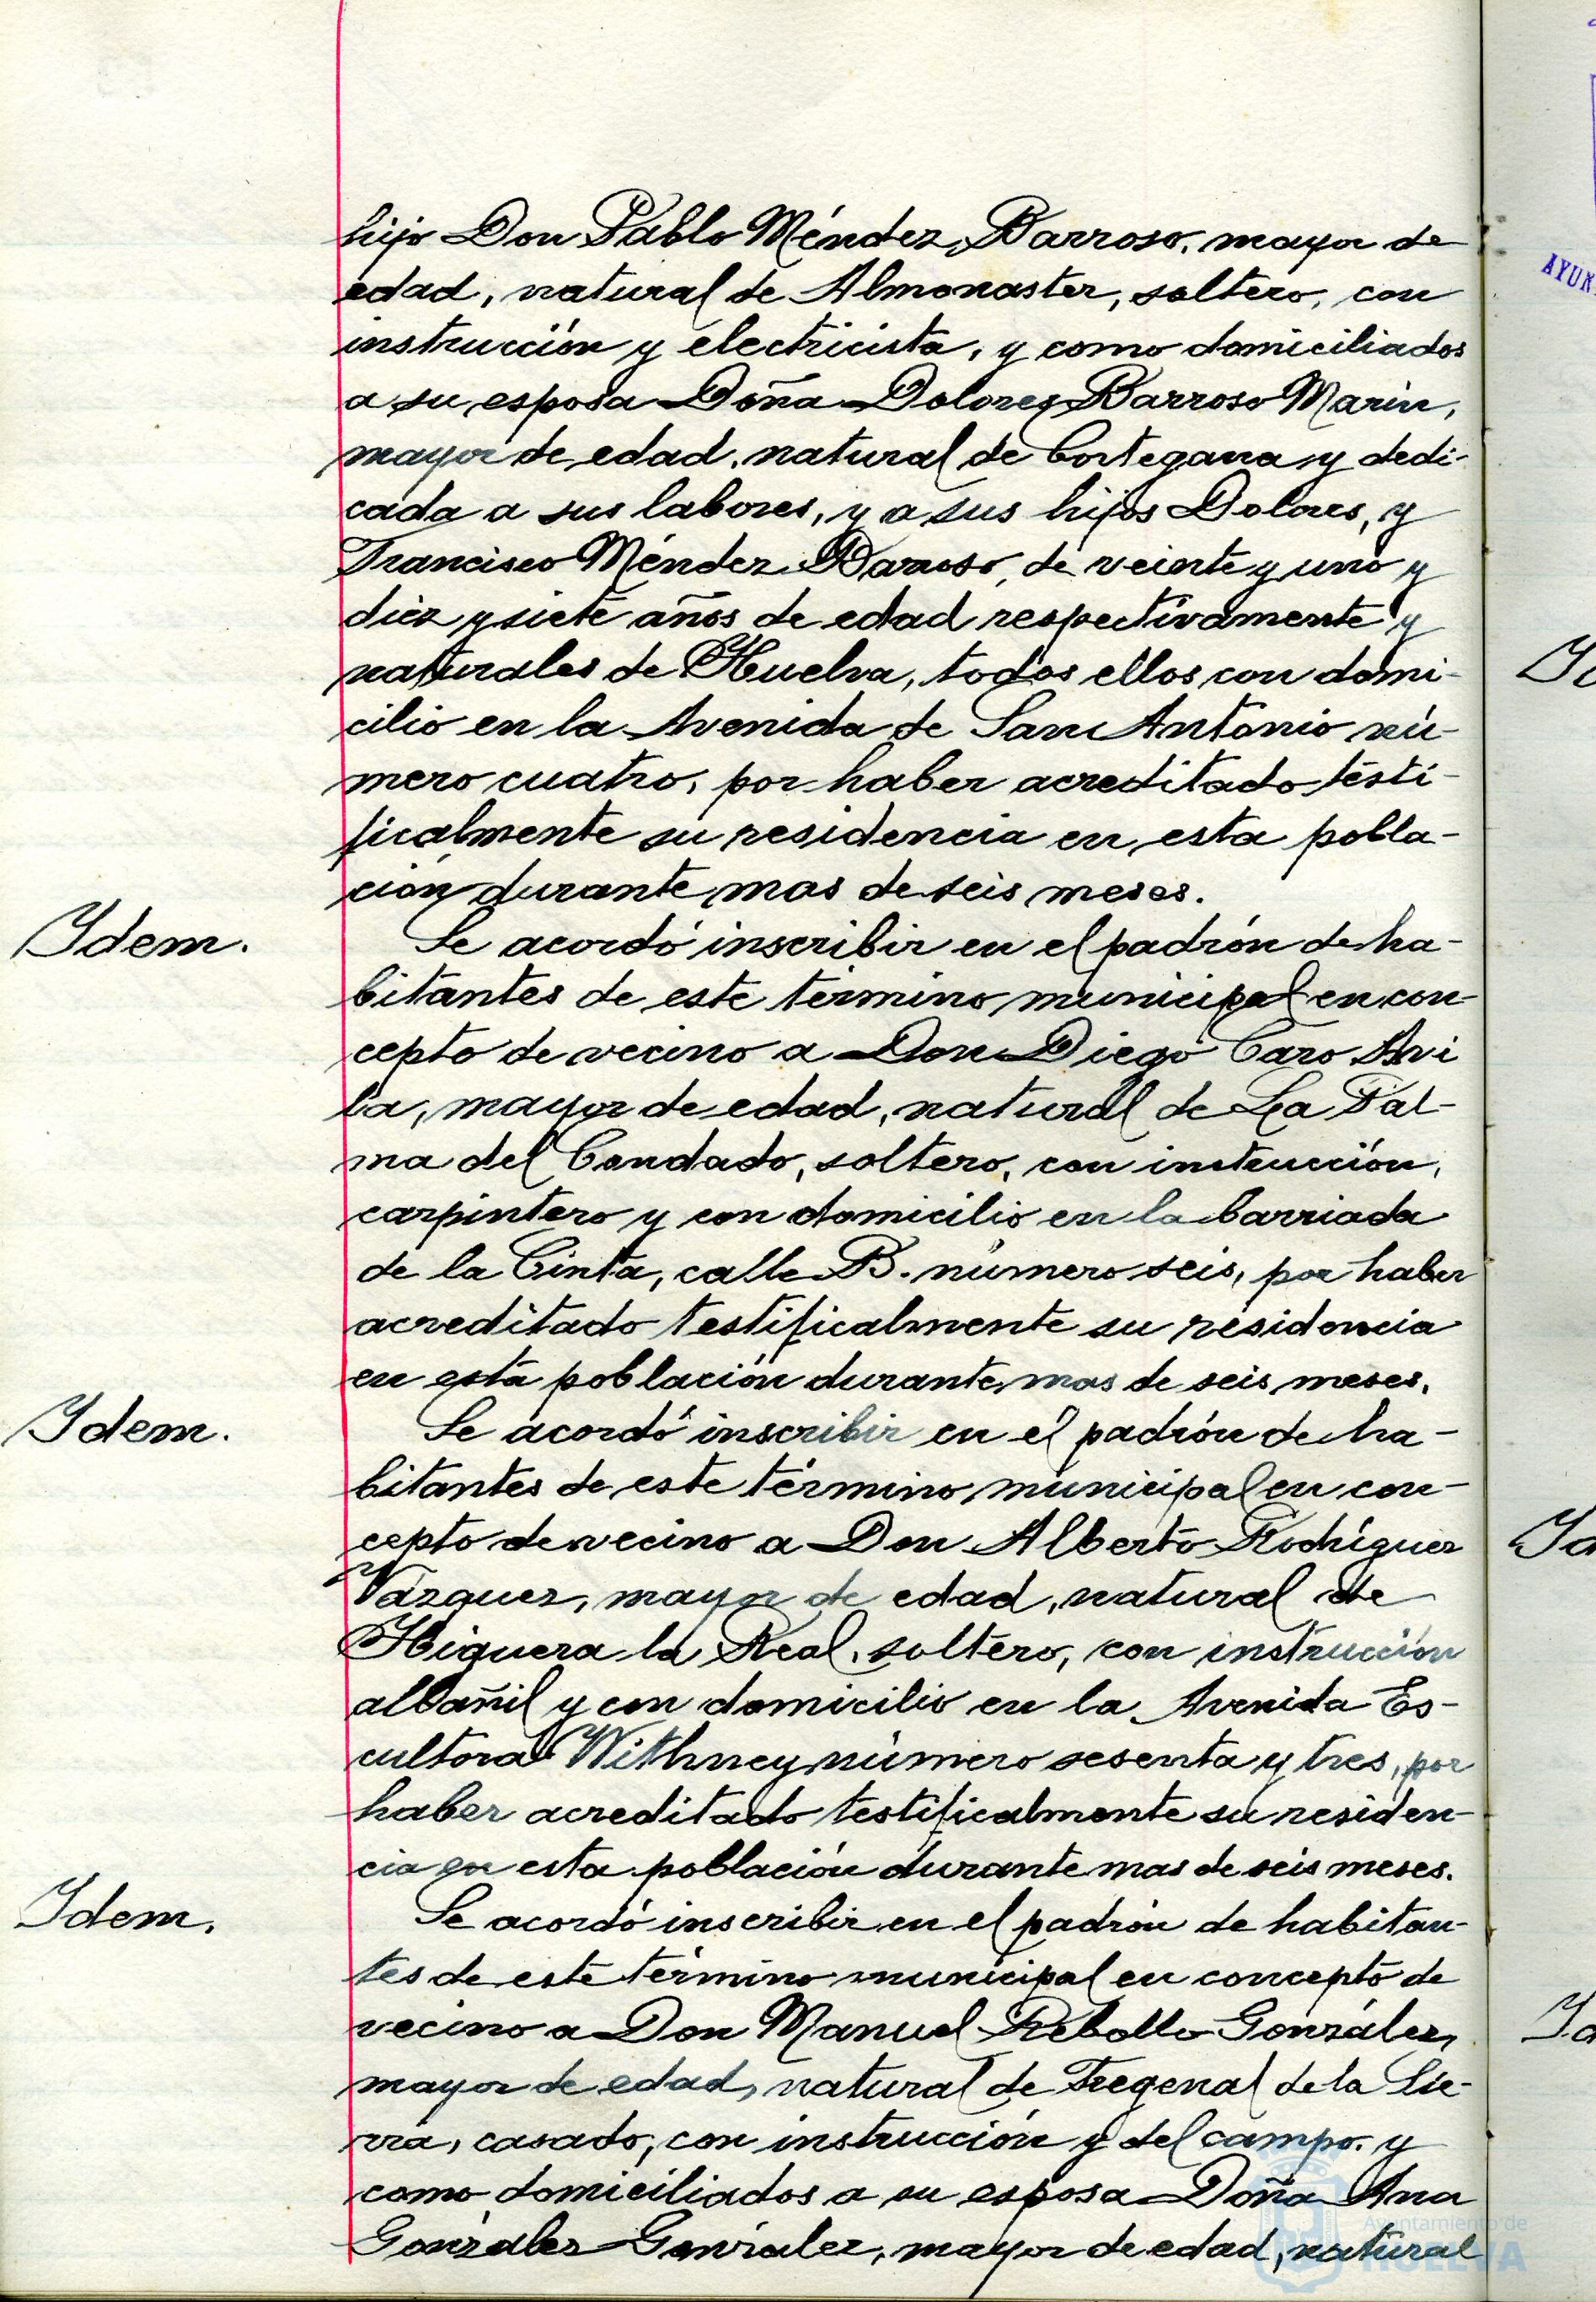 hijo Don Pablo Méndez Barroso, mayor de
edad, natural de Almonaster, soltero, con
instrucción y electricista, y como domiciliados
a su esposa Doña Dolores Barroso Marín,
mayor de edad, natural de Cortegana y dedi-
cada a sus labores, y a sus hijos Dolores, y
Francisco Méndez Barroso, de veinte y uno y
diez y siete años de edad respectivamente y
naturales de Huelva, todos ellos con domi-
cilio en la Avenida de San Antonio nú-
mero cuatro, por haber acreditado testi-
ficalmente su residencia en esta pobla-
ción durante mas de seis meses.
Idem.
Se acordó inscribir en el padrón de ha-
bitantes de este término municipal en con-
cepto de vecino a Don Diego Caro Avi
la, mayor de edad, natural de La Pal-
ma del Condado, soltero, con instrucción,
carpintero y con domicilio en la barriada
de la Cinta, calle B. número seis, por haber
acreditado testificalmente su residencia
en esta población durante mas de seis meses.
Idem.
Se acordó inscribir en el padrón de ha-
bitantes de este término municipal en con-
cepto de vecino a Don Alberto Rodríguez
Vázquez, mayor de edad, natural de
Higuera la Real, soltero, con instrucción
albañil y con domicilio en la Avenida Es-
cultora Withney número sesenta y tres, por
haber acreditado testificalmente su residen-
cia en esta población durante mas de seis meses.
Idem.
Se acordó inscribir en el padrón de habitan-
tes de este término municipal en concepto de
vecino a Don Manuel Rebollo González,
mayor de edad, natural de Fregenal de la Sie-
rra, casado, con instrucción y del campo. y
como domiciliados a su esposa Doña Ana
González González, mayor de edad, natural
Ayuntamiento de
HUELVA
AYUN